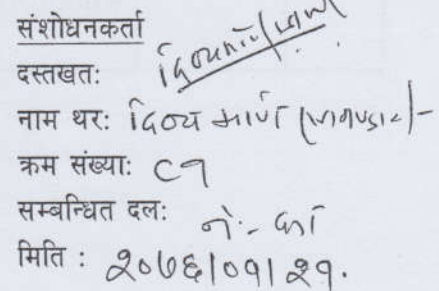 संशोधनकर्ता
दस्तखत:
नाम थर: दिव्य मणि
क्रम संख्या: ८१
सम्बन्धित दल: ने.
मिति : २०७६/०१/२१.